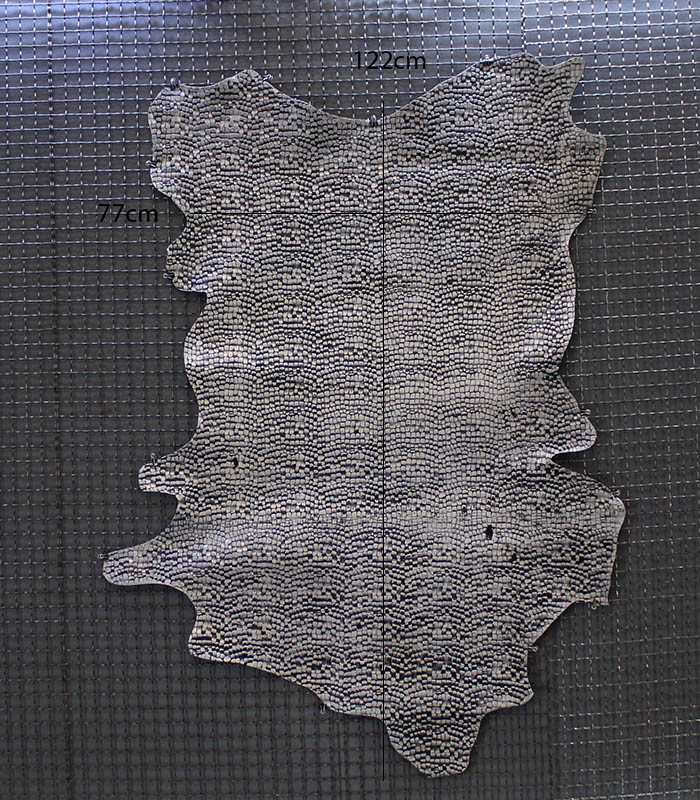 122cm
77cm